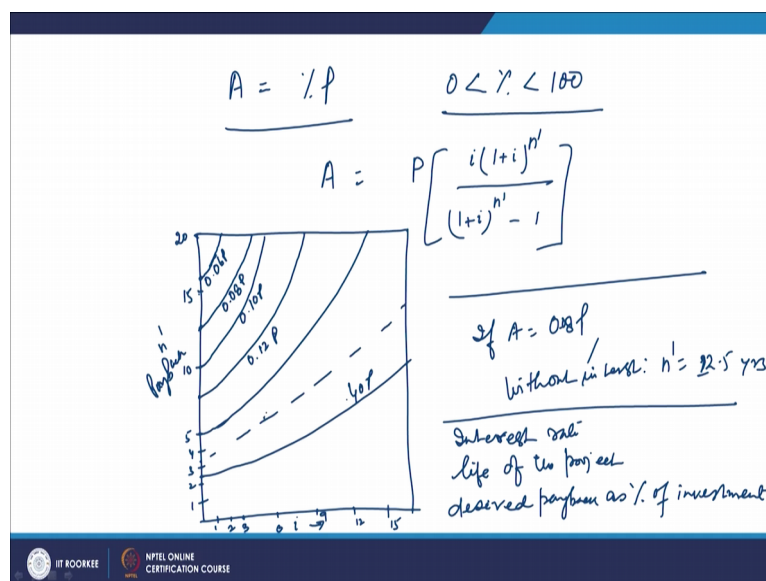 A = % P
0 < % < 100
A = P [ i(1+i)^n' / (1+i)^n' - 1 ]
20
15
10
5
4
3
2
1
Payback n'
0.06P
0.08P
0.10P
0.12P
.40P
1 2 3 6 i → 9 12 15
If A = 0.08P
Without interest: n' = 12.5 yrs
Interest rate
life of the project
desired payback as % of investment
IIT ROORKEE
NPTEL ONLINE
CERTIFICATION COURSE